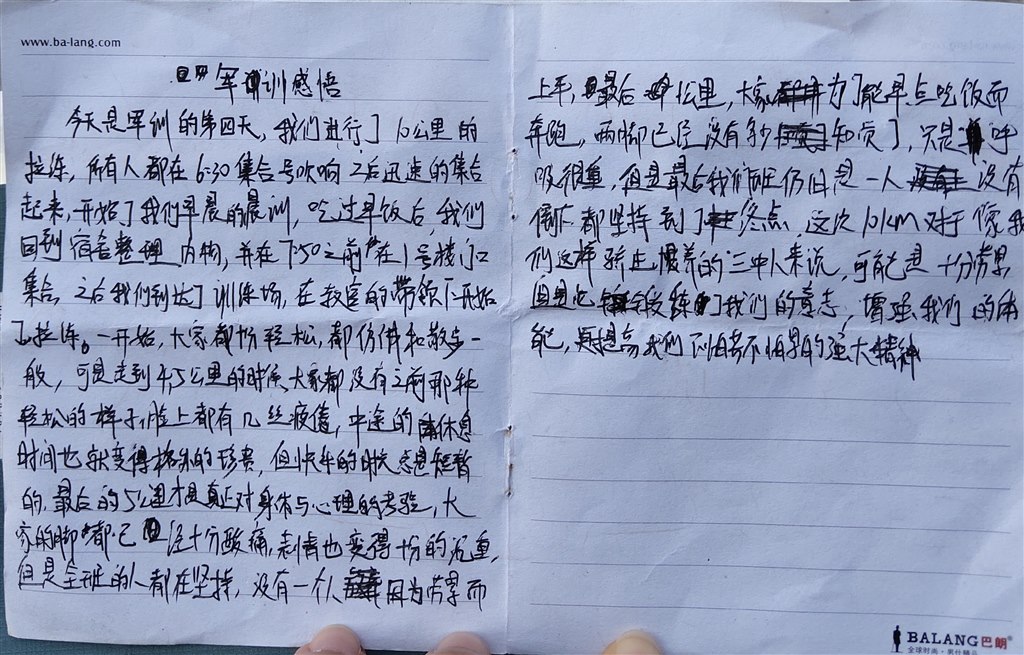 www.ba-lang.com
军训感悟
今天是军训的第四天，我们进行了10公里的
拉练，所有人都在6:30集合号吹响之后迅速的集合
起来，开始了我们早晨的晨训，吃过早饭后，我们
回到宿舍整理内物，并在7:50之前在1号楼门口
集合，之后我们到达了训练场，在教官的带领下开始
了拉练。一开始，大家都份轻松，都仿佛和散步一
般，可是走到4,5公里的时候，大家都没有之前那种
轻松的样子，脸上都有几丝疲惫，中途的休息
时间也就变得格外的珍贵，但快乐的时光总是短暂
的，最后的5公里才是真正对身体与心理的考验，大
家的脚都已经十分酸痛，也变得十份的沉重，
但是全班的人都在坚持，没有一个人因为劳累而
上车，最后公里，大家为了能早点吃饭而
奔跑，两脚已经没有多少知觉了，只是呼
吸很重，但是最后我们班仍旧是一人没有
倒下都坚持到了终点，这次10km对于像我
们这样娇生惯养的三中人来说，可能是十分劳累
但是也锻练了我们的意志，增强我们的体
能，提高我们不怕苦不怕累的强大精神
BALANG巴朗®
全球时尚·男仕精品